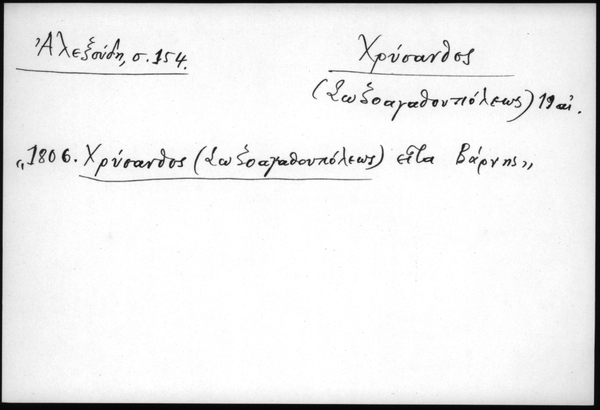 Ἀλεξούδη, σ. 154.
Χρύσανθος
(Σωζοαγαθουπόλεως) 19 αἰ.
„1806. Χρύσανθος (Σωζοαγαθουπόλεως) εἶτα Βάρνης„